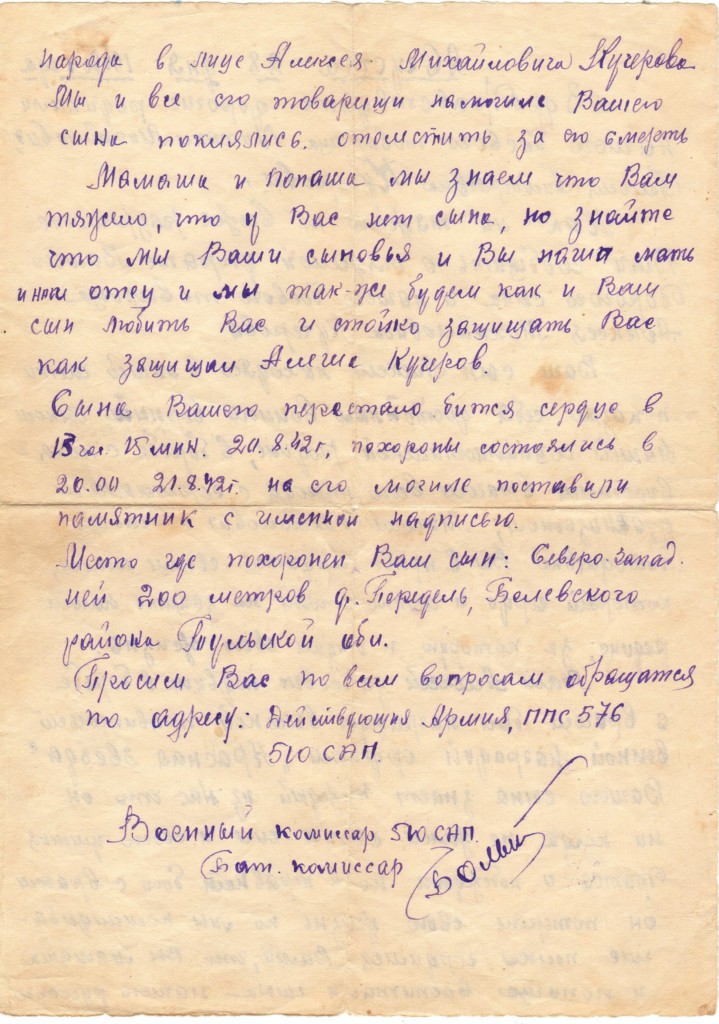 народа в лице Алексея Михайловича Кучерова
Мы и все его товарищи на могиле Вашего
сына поклялись отомстить за его смерть
Мамаша и папаша мы знаем что Вам
тяжело, что у Вас нет сына, но знайте
что мы Ваши сыновья и Вы наша мать
и наш отец и мы так-же будем как и Ваш
сын любить Вас и стойко защищать Вас
как защищал Алеша Кучеров.
Сына Вашего перестало бится сердце в
13 час. 15 мин. 20.8.42г, похороны состоялись в
20.00 21.8.42г. на его могиле поставили
памятник с именной надписью.
Место где похоронен Ваш сын: Северо-запад-
ней 200 метров д. Передель, Белевского
района Тульской обл.
Просим Вас по всем вопросам обращатся
по адресу: Действующая Армия, ППС 576
510 САП.
Военный комиссар 510 САП.
Бат. комиссар